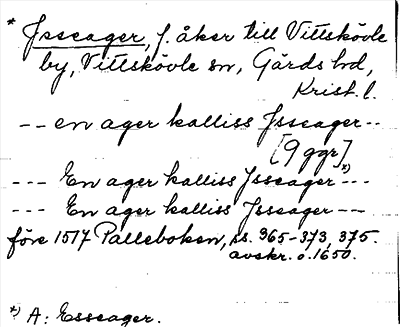 * Jsseager, f. åker till Vittskövle
by, Vittskövle sn, Gärds hd,
Krist. l.
-- en ager kalliss Jsseager --
[9 ggr]
--- En ager kalliss Jsseager *) ---
--- En ager kalliss Jsseager ---
före 1517 Palleboken, ss. 365-373, 375.
avskr. o. 1650.
*) A: Esseager.